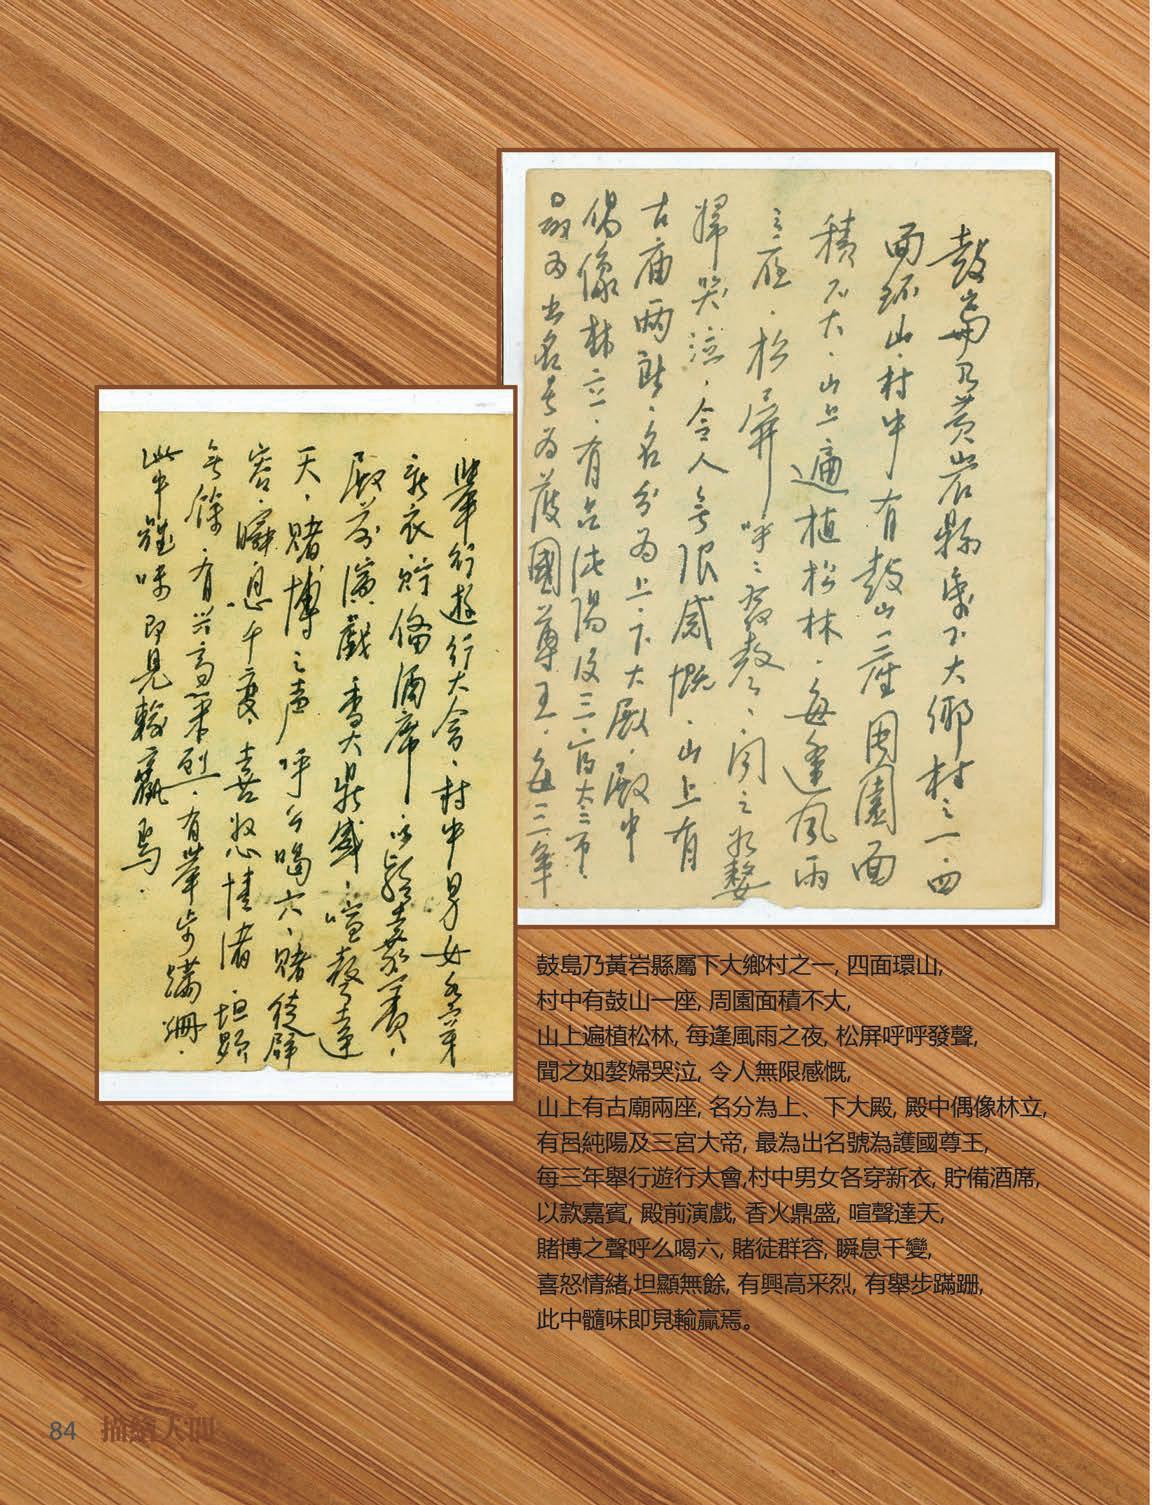 鼓島乃黃岩縣屬下大鄉村之一．四
面環山．村中有鼓山一座周圍面
積不大．山上遍植松林．每逢風雨
之夜．松屏呼呼發聲．聞之如嫠
婦哭泣．令人無限感慨．山上有
古廟兩座．名分為上．下大殿．殿中
偶像林立．有呂純陽及三官大帝．
最為出名号為護國尊王．每三年
舉行遊行大會．村中男女各穿
新衣．貯備酒席．以款嘉賓．
殿前演戲香火鼎盛．喧聲達
天．賭博之声呼么喝六．賭徒群
容．瞬息千变．喜怒情渚．坦顯
無餘．有兴高采烈．有舉步蹒跚．
此中髓味即見輸贏焉．
鼓島乃黃岩縣屬下大鄉村之一, 四面環山,
村中有鼓山一座, 周園面積不大,
山上遍植松林, 每逢風雨之夜, 松屏呼呼發聲,
聞之如嫠婦哭泣, 令人無限感慨,
山上有古廟兩座, 名分為上、下大殿, 殿中偶像林立,
有呂純陽及三宮大帝, 最為出名號為護國尊王,
每三年舉行遊行大會,村中男女各穿新衣, 貯備酒席,
以款嘉賓, 殿前演戲, 香火鼎盛, 喧聲達天,
賭博之聲呼么喝六, 賭徒群容, 瞬息千變,
喜怒情緒,坦顯無餘, 有興高采烈, 有舉步蹣跚,
此中髓味即見輸贏焉。
84